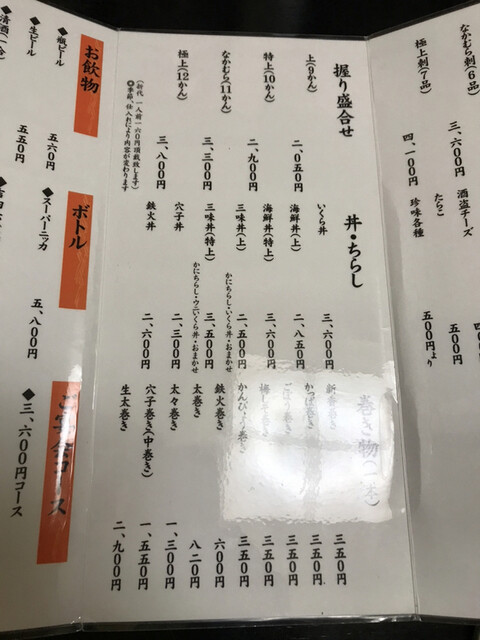 なかむら刺(6品) 三、六〇〇円
極上刺(7品) 四、一〇〇円
酒盗チーズ
たらこ 五〇〇円
珍味各種 五〇〇円より
握り盛合せ
上(9かん) 二、〇五〇円
特上(10かん) 二、九〇〇円
なかむら(11かん) 三、三〇〇円
極上(12かん) 三、八〇〇円
(折代 一人前一六〇円頂戴致します)
◎季節、仕入れにより内容が変わります
丼・ちらし
いくら丼 三、六〇〇円
海鮮丼(上) 二、八五〇円
海鮮丼(特上) 三、六〇〇円
三味丼(上) 二、五〇〇円
かにちらし・いくら丼・おまかせ
三味丼(特上) 三、五〇〇円
かにちらし・ウニいくら丼・おまかせ
穴子丼 二、三〇〇円
鉄火丼 二、六〇〇円
巻き物(一本)
新香巻き 三五〇円
かっぱ巻き 三五〇円
ごぼう巻き 三五〇円
梅しそ巻き 三五〇円
かんぴょう巻き 三五〇円
鉄火巻き 六〇〇円
太巻き 八二〇円
太々巻き 一、三〇〇円
穴子巻き(中巻き) 一、五五〇円
生太巻き 二、九〇〇円
お飲物
◆瓶ビール 五六〇円
◆生ビール 五五〇円
◆清酒(一合)
ボトル
◆スーパーニッカ 五、八〇〇円
ご宴会コース
◆三、六〇〇円コース